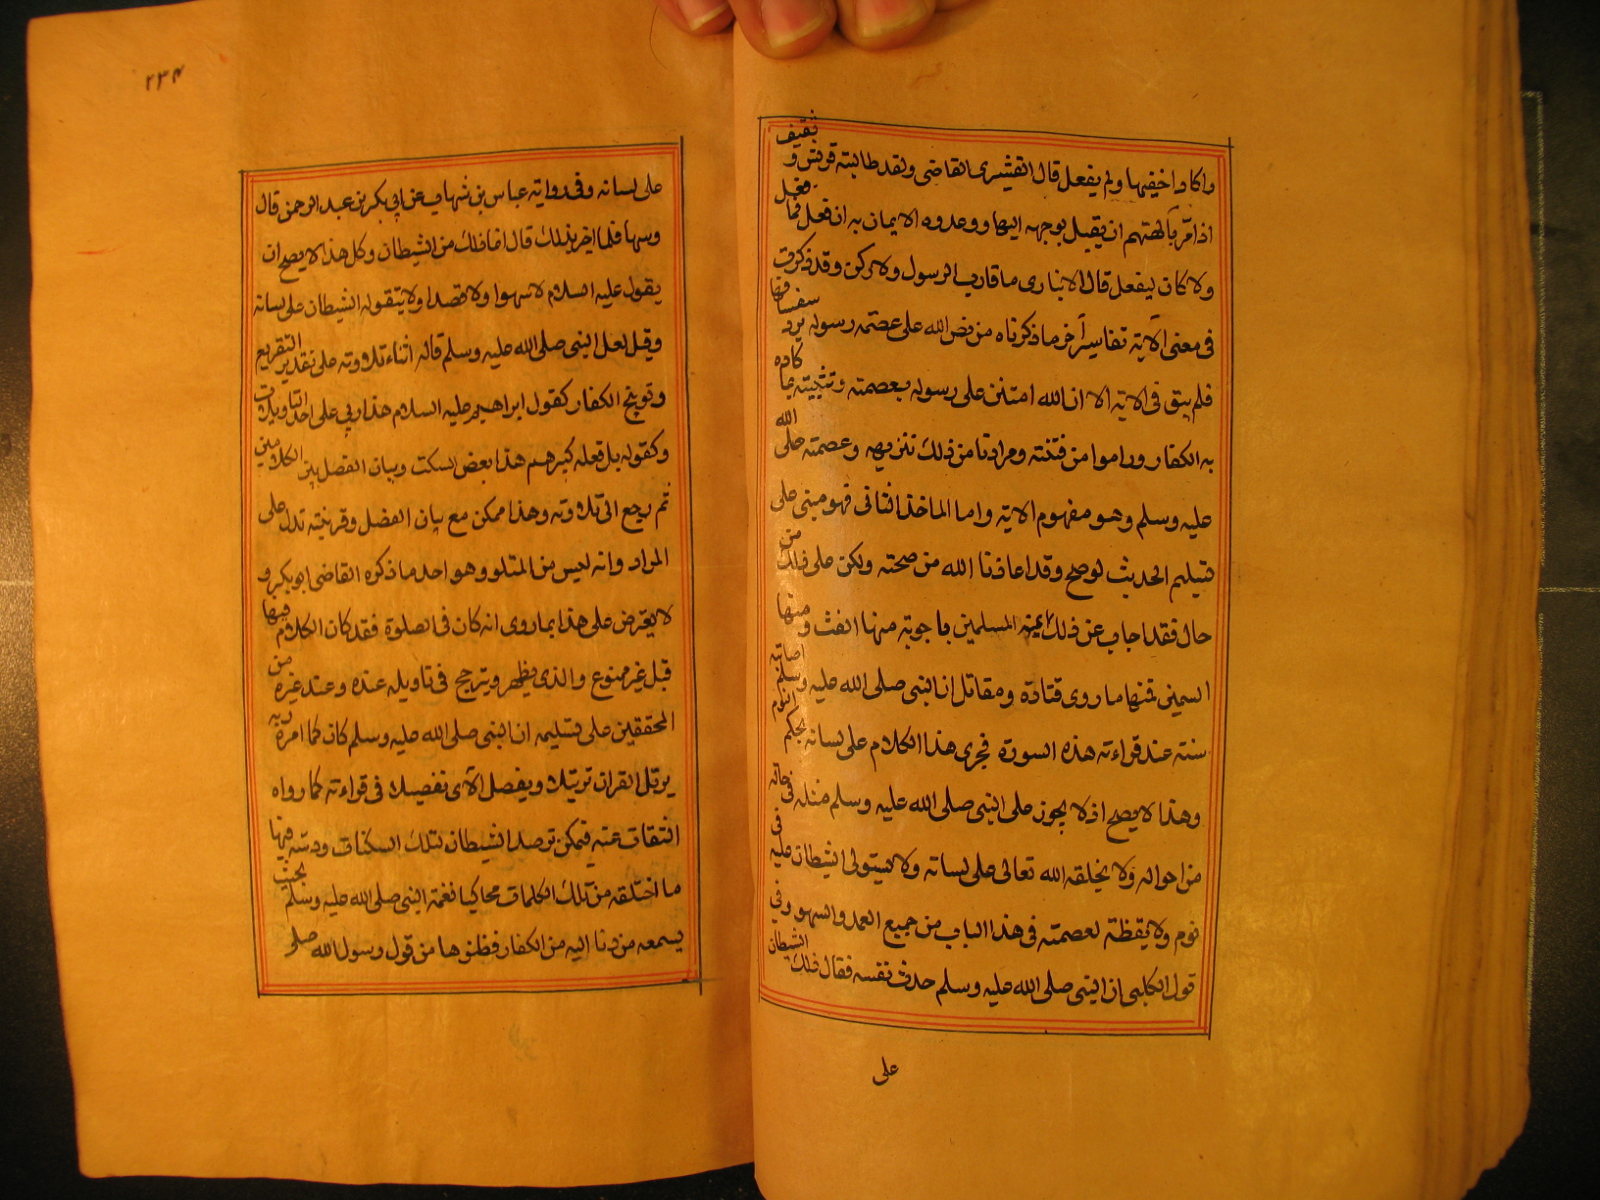 واكاد اخفيها ولم يفعل قال القشيرى القاضى ولقد طالبته قريش و ثقيف
اذ امرّ بآلهتهم ان يقبل بوجهه اليها ووعدوه الايمان به ان فعل فما فعل
ولا كان ليفعل قال الانبارى ما قارب الرسول ولا ركن وقد ذكرت
فى معنى الآية تفاسير أخر ما ذكرناه من نص الله على عصمة رسوله يرد سفسافها
فلم يبق فى الآية الا ان الله امتنن على رسوله بعصمته وتثبيته بما كاده
به الكفار وراموا من فتنته ومرادنا من ذلك تنزيهه وعصمته صلى الله
عليه وسلم وهو مفهوم الاية واما الماخذ الثانى فهو مبنى على
تسليم الحديث لو صح وقد اعاذنا الله من صحته ولكن على ذلك من
حال فقد اجاب عن ذلك ائمة المسلمين باجوبة منها الغث و منها
السمين فمنها ما روى قتادة ومقاتل ان النبى صلى الله عليه وسلم اصابته
سنة عند قراءته هذه السورة فجرى هذا الكلام على لسانه بحكم النوم
وهذا لا يصح اذ لا يجوز على النبى صلى الله عليه وسلم مثله فى حالة
من احواله ولا يخلقه الله تعالى على لسانه ولا يستولى الشيطان عليه فى
نوم ولا يقظة لعصمته فى هذا الباب من جميع العمد والسهو وفى
قول الكلبى ان النبى صلى الله عليه وسلم حدث نفسه فقال ذلك الشيطان
على
٢٣٤
على لسانه وفى رواية عباس بن شهاب عن ابى بكر بن عبد الرحمن قال
وسها فلما اخبر بذلك قال انما ذلك من الشيطان وكل هذا لا يصح ان
يقول عليه السلام لا سهوا ولا قصدا ولا يتقوله الشيطان على لسانه
وقيل لعل النبى صلى الله عليه وسلم قاله اثناء تلاوته على تقدير التقريع
وتوبيخ الكفار كقول ابراهيم عليه السلام هذا ربى على احد التاويلات
وكقوله بل فعله كبيرهم هذا بعض السكت وبيان الفصل بين الكلامين
ثم رجع الى تلاوته وهذا ممكن مع بيان الفصل وقرينة تدل على
المراد وانه ليس من المتلو وهو احد ما ذكره القاضى ابو بكر و
لا يعترض على هذا بما روى انه كان فى الصلوة فقد كان الكلام فيها
قبل غير ممنوع والذى يظهر ويترجح فى تاويله عنده وعند غيره من
المحققين على تسليمه ان النبى صلى الله عليه وسلم كان كما امره ربه
يرتل القران ترتيلا ويفصل الآى تفصيلا فى قراءته كما رواه
الثقات عنه فيمكن ترصد الشيطان لتلك السكتات ودسّه فيها
ما اختلقه من تلك الكلمات محاكيا نغمة النبى صلى الله عليه وسلم بحيث
يسمعه من دنا اليه من الكفار فظنوها من قول رسول الله صلى